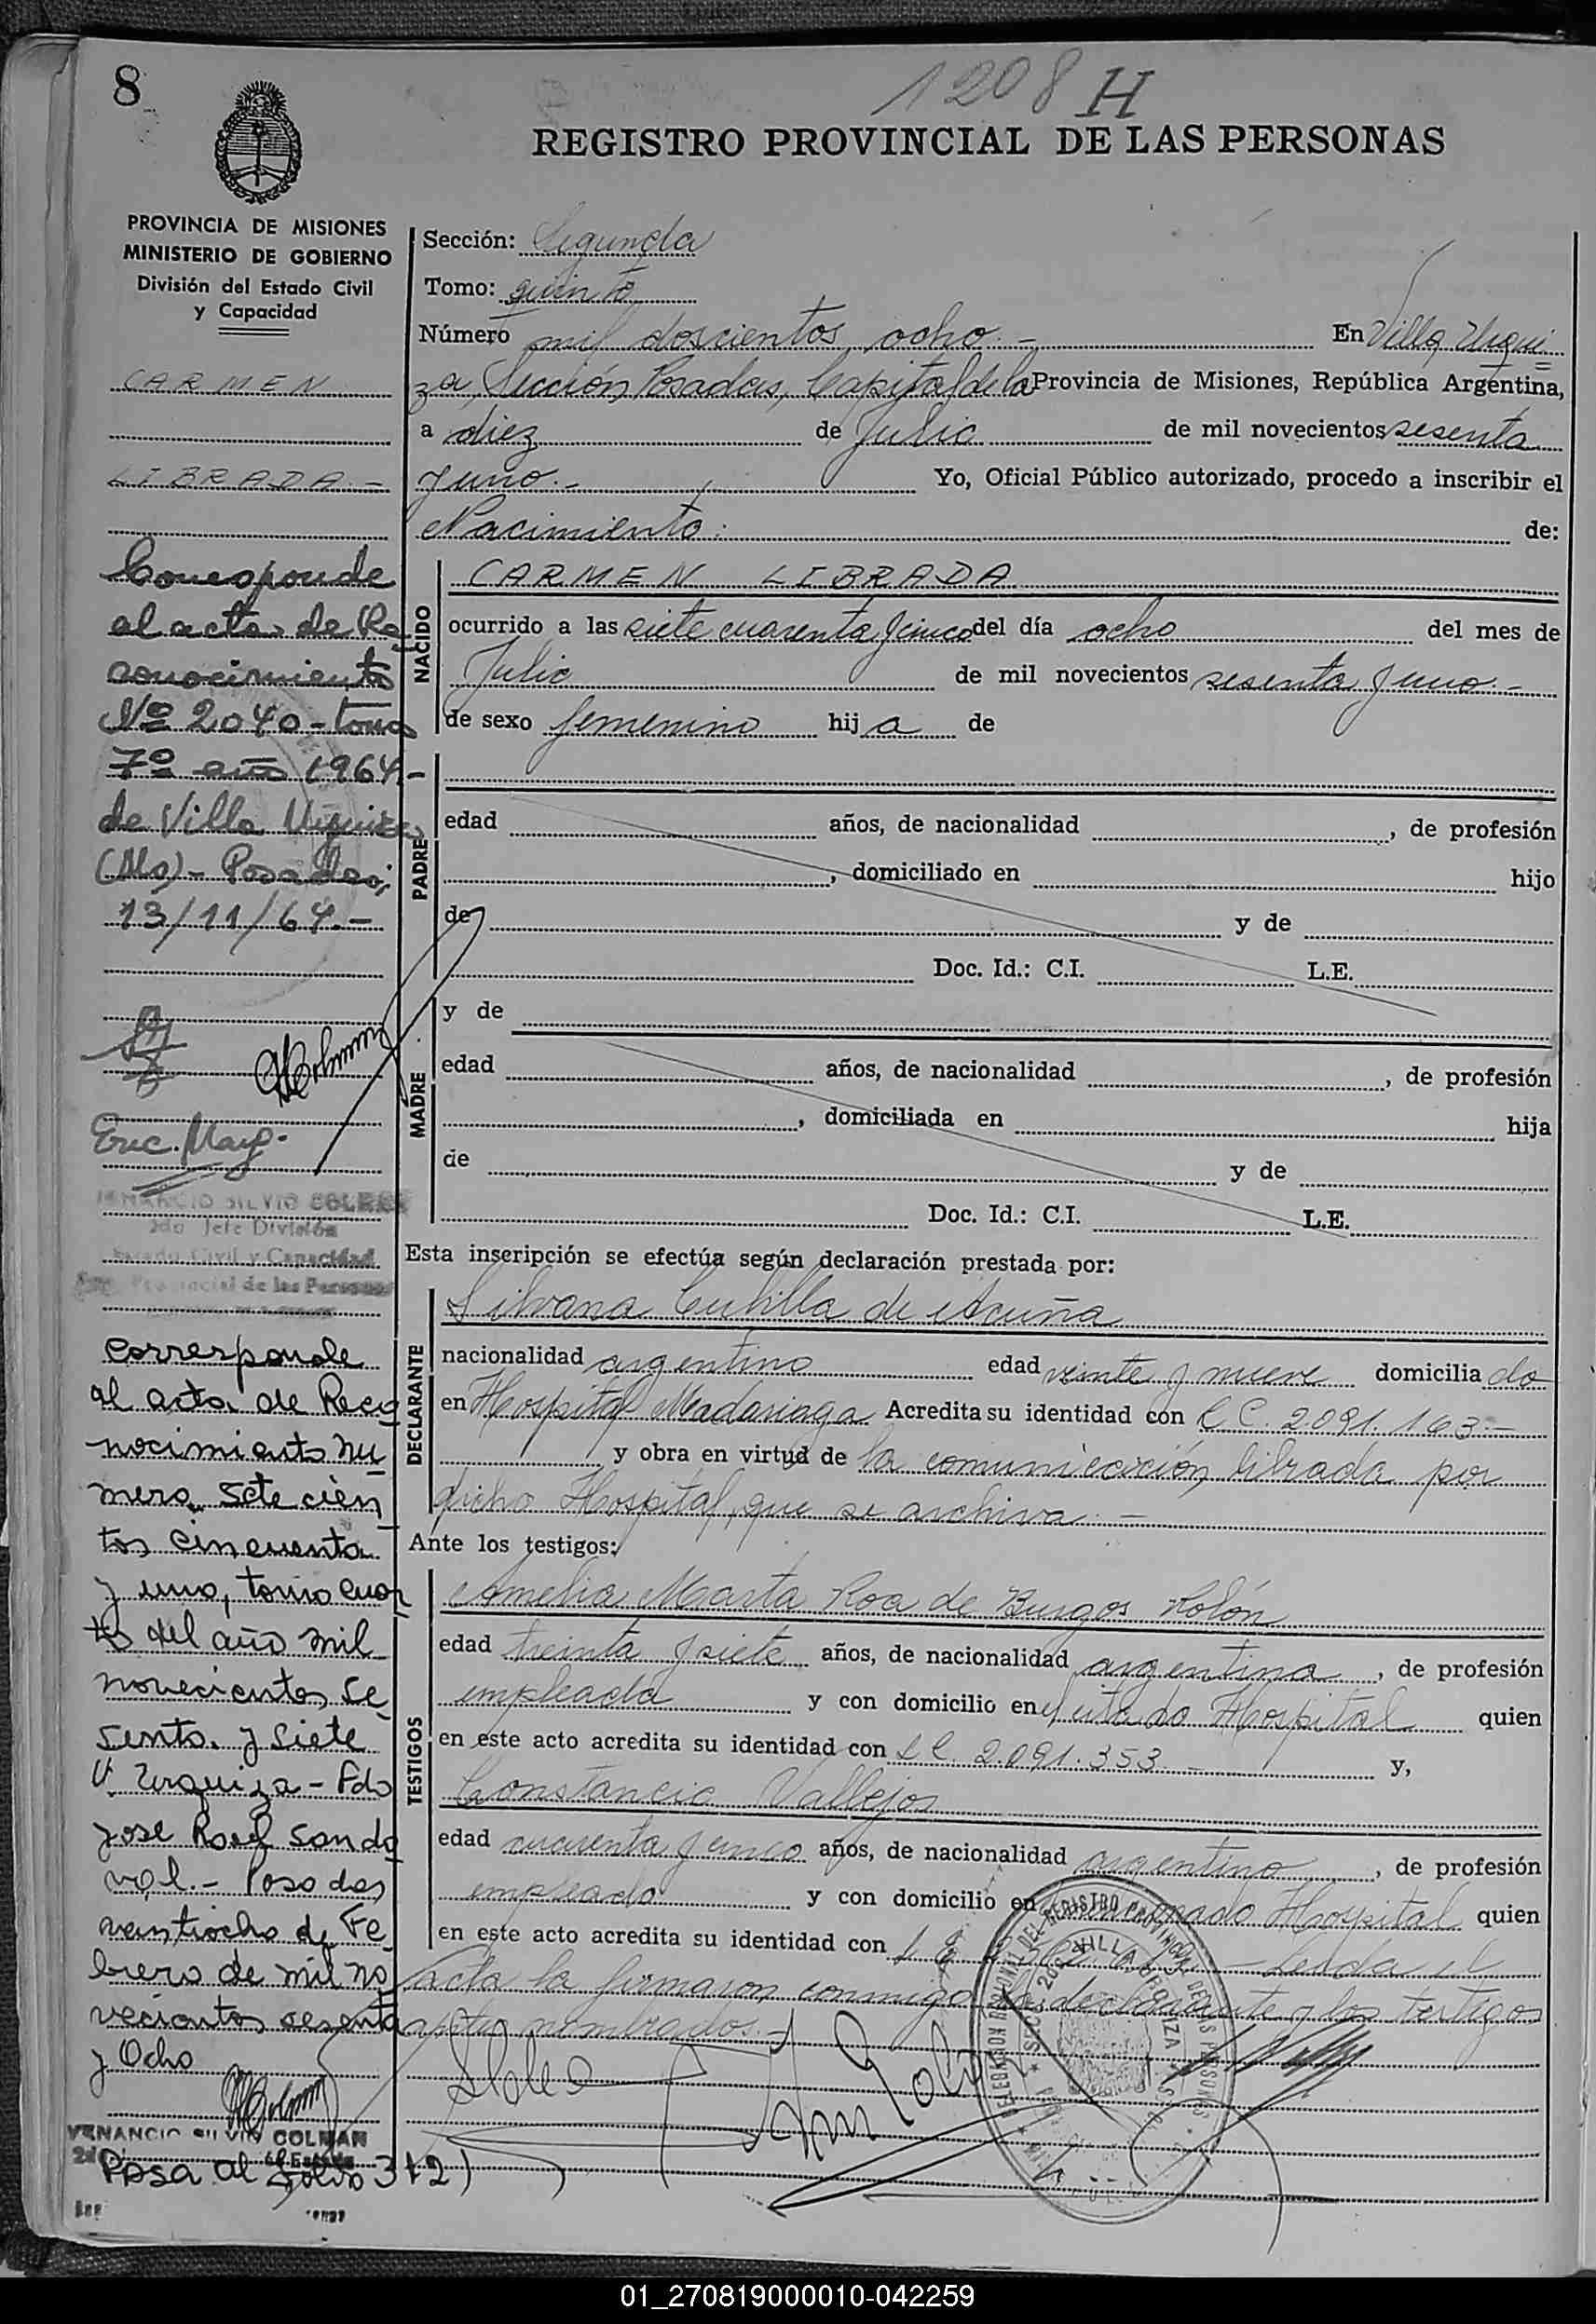 8
1208 H
REGISTRO PROVINCIAL DE LAS PERSONAS
PROVINCIA DE MISIONES
MINISTERIO DE GOBIERNO
División del Estado Civil
y Capacidad
CARMEN
LIBRADA.-
Corresponde
al acta de Re
conocimiento
Nº 2040 - tomo
7º año 1964.-
de Villa Urquiza
(Ms) - Posadas,
13/11/64.-
Enc. May.
2do Jefe División
Estado Civil y Capacidad
Provincial de las Personas
Corresponde
al acta de Reco
nocimiento nú
mero sete cien
tos cincuenta
y uno, tomo cuar
to del año mil
novecientos se
senta y siete
V. Urquiza - Fdo
Jose Roel Sando
val.- Posadas
veintiocho de Fe
brero de mil no
vecientos sesenta
y Ocho
VENANCIO SILVIO COLMAN
Pasa al Folio 372)
Sección: Segunda
Tomo: quinto
Número mil doscientos ocho.- En Villa Urqui
za, Sección Posadas, Capital de la Provincia de Misiones, República Argentina,
a diez de Julio de mil novecientos sesenta
y uno.- Yo, Oficial Público autorizado, procedo a inscribir el
Nacimiento: de:
NACIDO
CARMEN LIBRADA
ocurrido a las siete cuarenta y cinco del día ocho del mes de
Julio de mil novecientos sesenta y uno.-
de sexo femenino hij a de
PADRE
edad años, de nacionalidad , de profesión
, domiciliado en hijo
de y de
Doc. Id.: C.I. L.E.
MADRE
y de
edad años, de nacionalidad , de profesión
, domiciliada en hija
de y de
Doc. Id.: C.I. L.E.
Esta inscripción se efectúa según declaración prestada por:
DECLARANTE
Silvana Cubilla de Acuña
nacionalidad argentina edad veinte y nueve domicilia da
en Hospital Madariaga Acredita su identidad con L.C. 2.091.163.-
y obra en virtud de la comunicación librada por
dicho Hospital, que se archiva.-
Ante los testigos:
TESTIGOS
Amelia Marta Roa de Burgos Rolón
edad treinta y siete años, de nacionalidad argentina, de profesión
empleada y con domicilio en el citado Hospital quien
en este acto acredita su identidad con L.C. 2.091.353.- y,
Constancio Vallejos
edad cuarenta y cinco años, de nacionalidad argentino, de profesión
empleado y con domicilio en mencionado Hospital quien
en este acto acredita su identidad con L.E. - Leida el
acta la firmaron conmigo la declarante y los testigos
nombrados.-
01_270819000010-042259